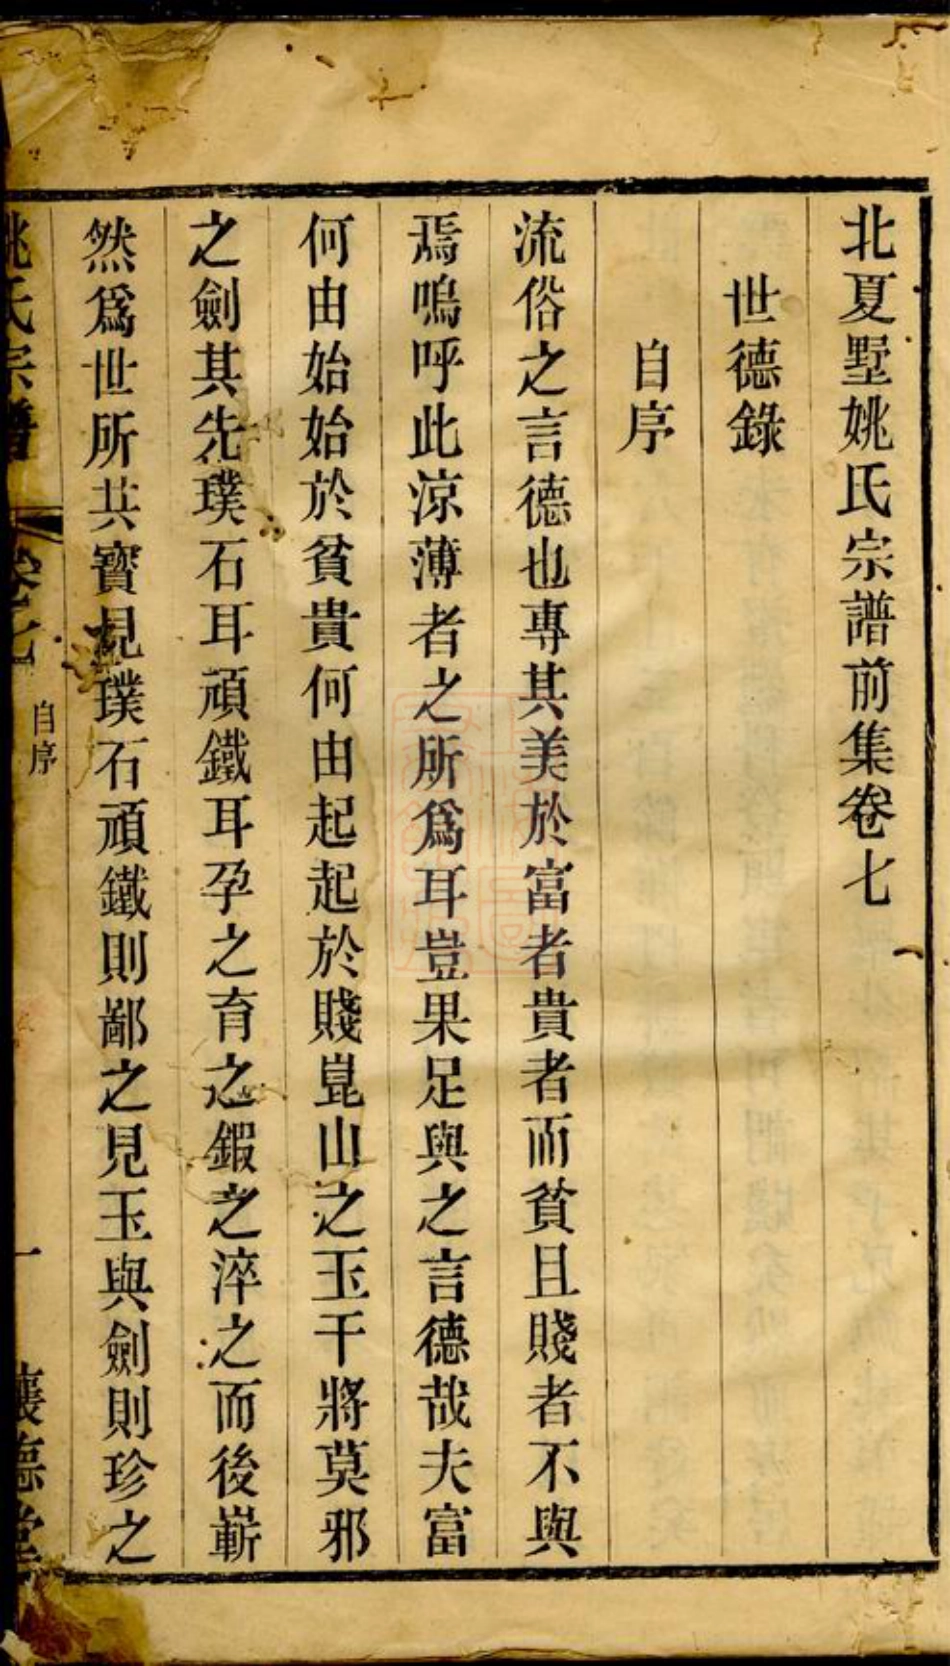 北夏墅姚氏宗譜前集卷七
世德錄
自序
流俗之言德也專其美於富者貴者而貧且賤者不與
焉嗚呼此涼薄者之所爲耳豈果足與之言德哉夫富
何由始始於貧貴何由起起於賤崑山之玉干將莫邪
之劍其先璞石耳頑鐵耳孕之育之鍜之淬之而後嶄
然爲世所共寶見璞石頑鐵則鄙之見玉與劍則珍之
姚氏宗譜
卷七
自序
一
德堂